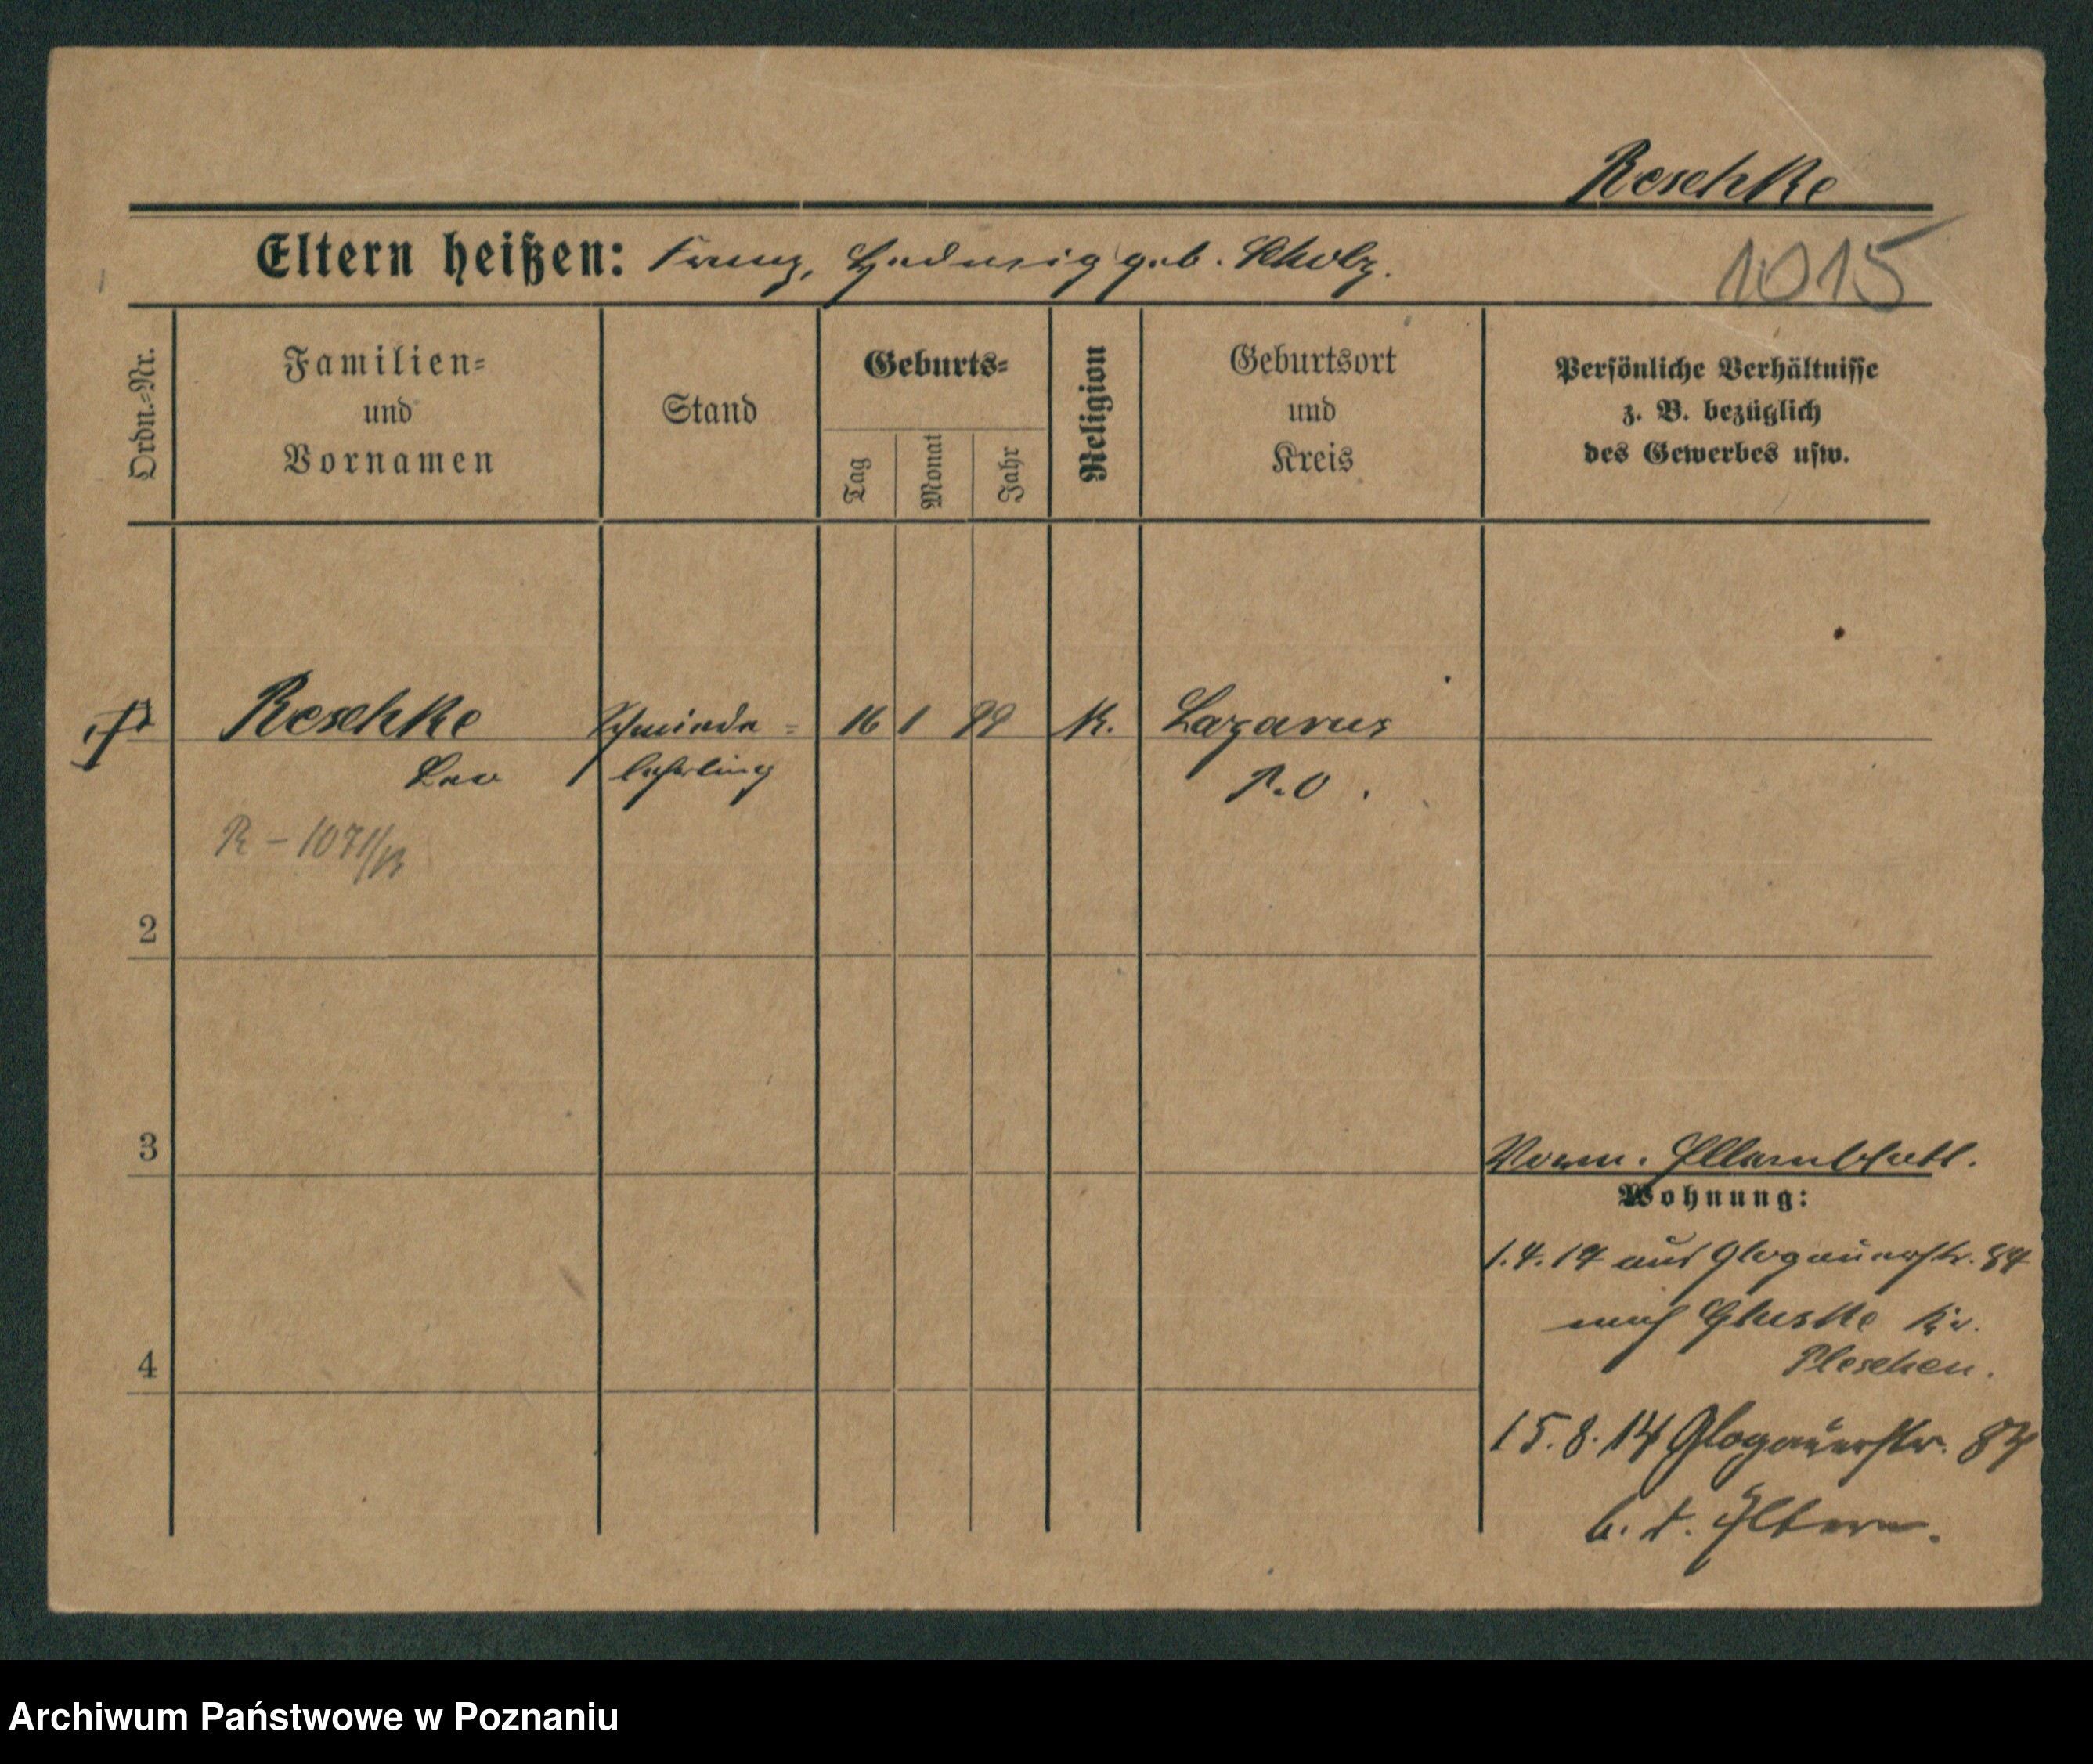 Reschke
Eltern heißen: Franz, Hedwig geb. Scholz.
1015
Ordn.-Nr.
Familien-
und
Vornamen
Stand
Geburts-
Tag
Monat
Jahr
Religion
Geburtsort
und
Kreis
Persönliche Verhältnisse
z. B. bezüglich
des Gewerbes usw.
Reschke Schmiede- 16 1 99 K. Lazarus
Leo lehrling P.O.
R-1071/
2
3
4
Wohnung:
1.4.14 aus Glogauerstr. 84
nach Gluski Kr.
Pleschen.
15.8.14 Glogauerstr. 84
b. d. Eltern.
Archiwum Państwowe w Poznaniu